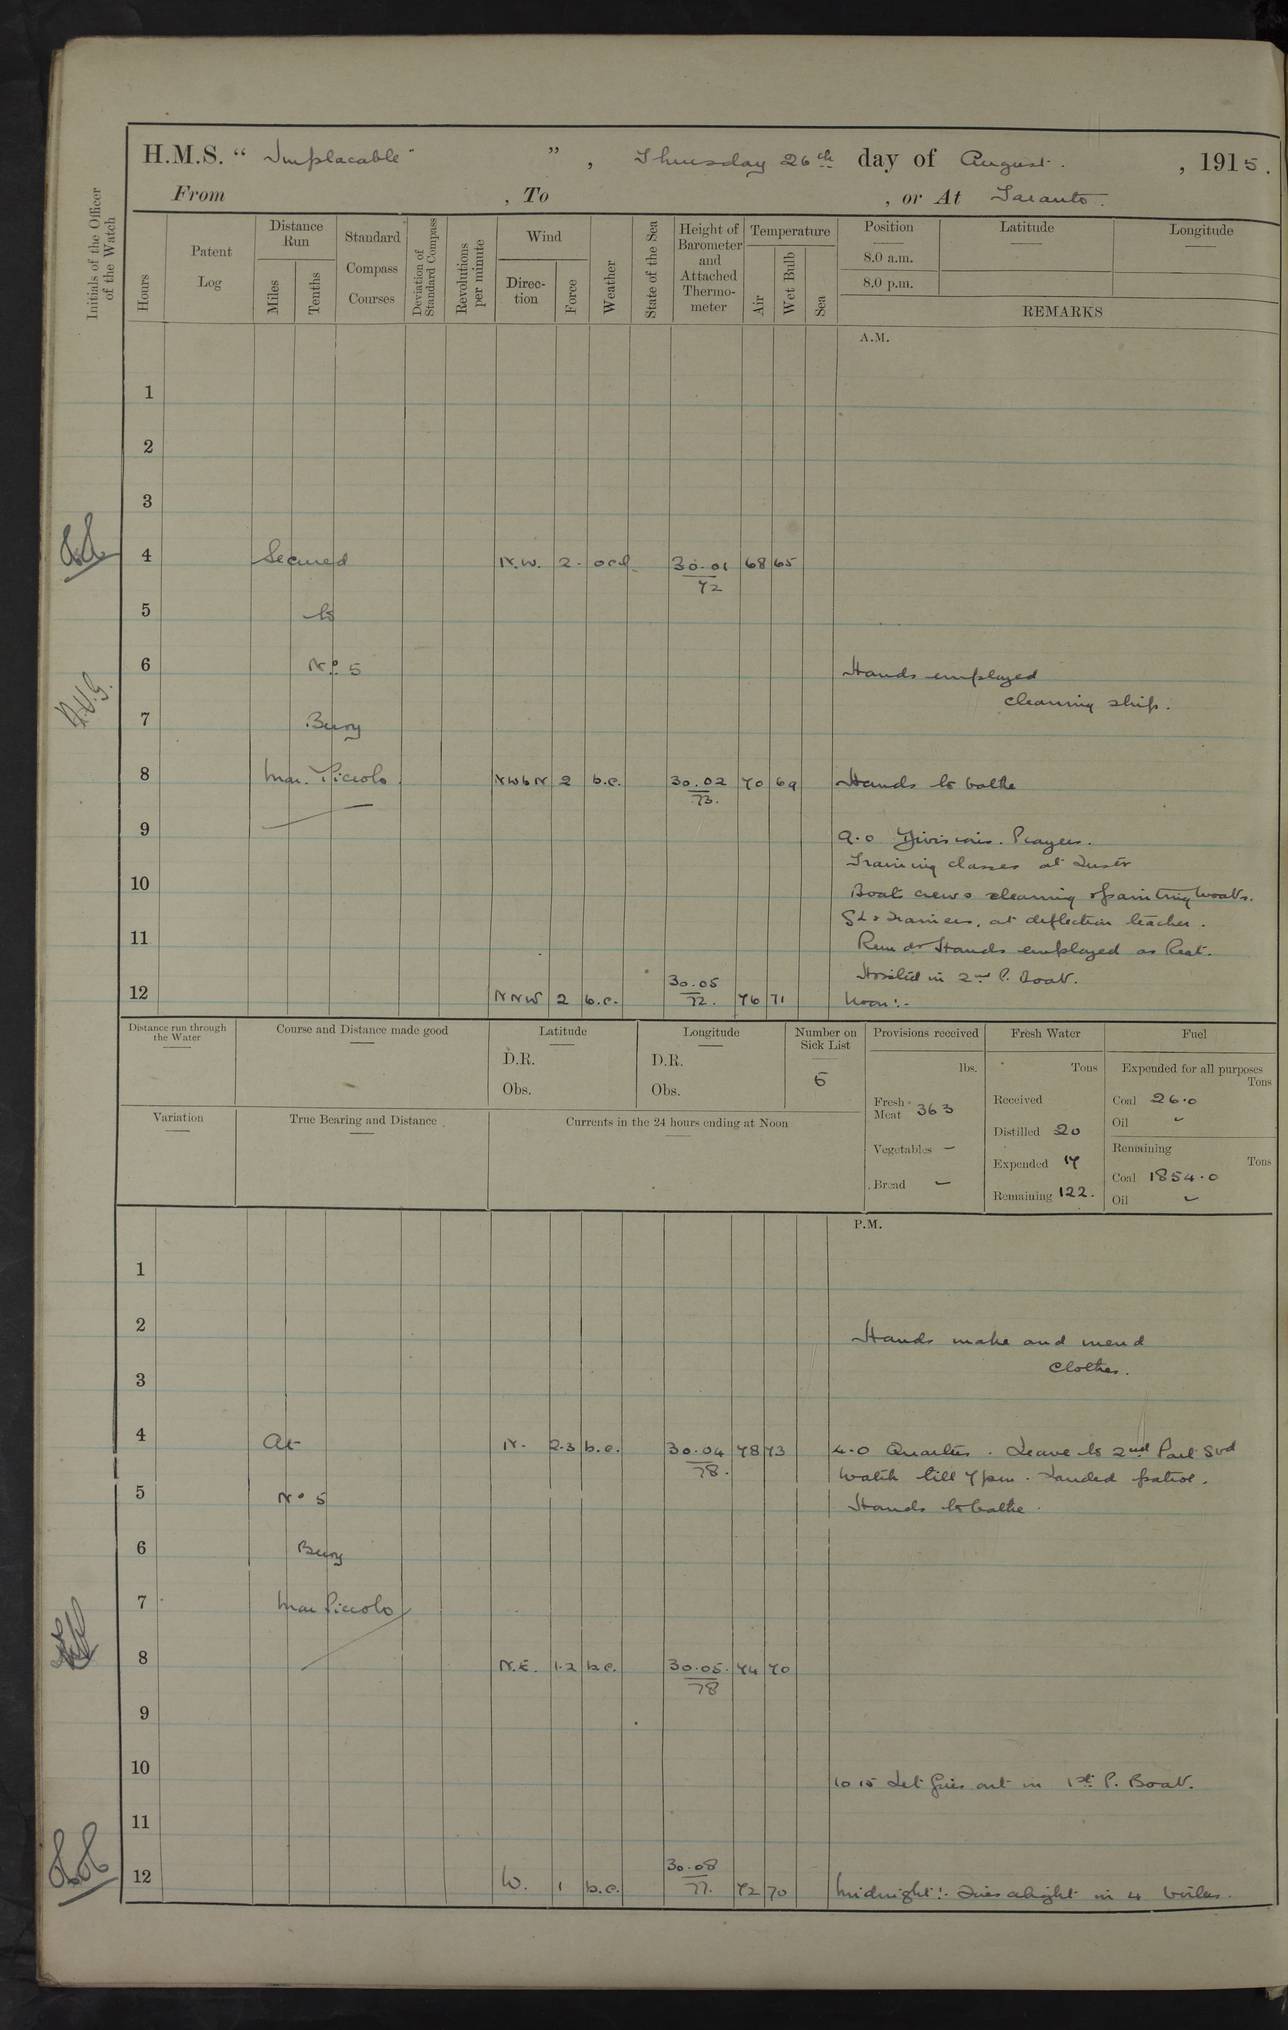 H.M.S. " Implacable " , Thursday 26th day of August. , 1915.
From , To , or At Taranto.
Initials of the Officer of the Watch
Hours
Patent Log
Distance Run
Miles
Tenths
Standard Compass Courses
Deviation of Standard Compass
Revolutions per minute
Wind
Direction
Force
Weather
State of the Sea
Height of Barometer and Attached Thermometer
Temperature
Air
Wet Bulb
Sea
Position
Latitude
Longitude
8.0 a.m.
8.0 p.m.
REMARKS
A.M.
1
2
3
4 Secured N.W. 2. ocd. 30.01 68 65
72
5 to
6 No. 5 Hands employed
cleaning ship.
7 Buoy
8 Mar. Piccolo. NWbN 2 b.c. 30.02 70 69 Hands to bathe
73.
9 9.0 Divisions. Prayers.
Training classes at Instr
10 Boats crews cleaning & painting boats.
at deflection teacher.
11 Remdr Hands employed as Reqt.
Hoisted in 2nd P. Boat.
12 NNW 2 b.c. 30.05 76 71 Noon:-
72.
Distance run through the Water
Course and Distance made good
Latitude
D.R.
Obs.
Longitude
D.R.
Obs.
Number on Sick List
5
Provisions received
lbs.
Fresh Meat 363
Vegetables –
Bread –
Fresh Water
Tons
Received
Distilled 20
Expended 17
Remaining 122.
Fuel
Expended for all purposes
Tons
Coal 26.0
Oil –
Remaining
Tons
Coal 1854.0
Oil –
Variation
True Bearing and Distance
Currents in the 24 hours ending at Noon
P.M.
1
2 Hands make and mend
clothes.
3
4 At N. 2.3 b.c. 30.04 78 73 4.0 Quarters. Leave to 2nd Part Stbd
78. Watch till 7pm. Landed patrol.
5 No 5 Hands to bathe.
6 Buoy
7 Mar Piccolo
8 N.E. 1.2 b.c. 30.05. 74 70
78
9
10 10 15 Let fires out in 1st P. Boat.
11
12 W. 1 b.c. 30.08 72 70 Midnight:- Fires alight in 4 boilers.
77.